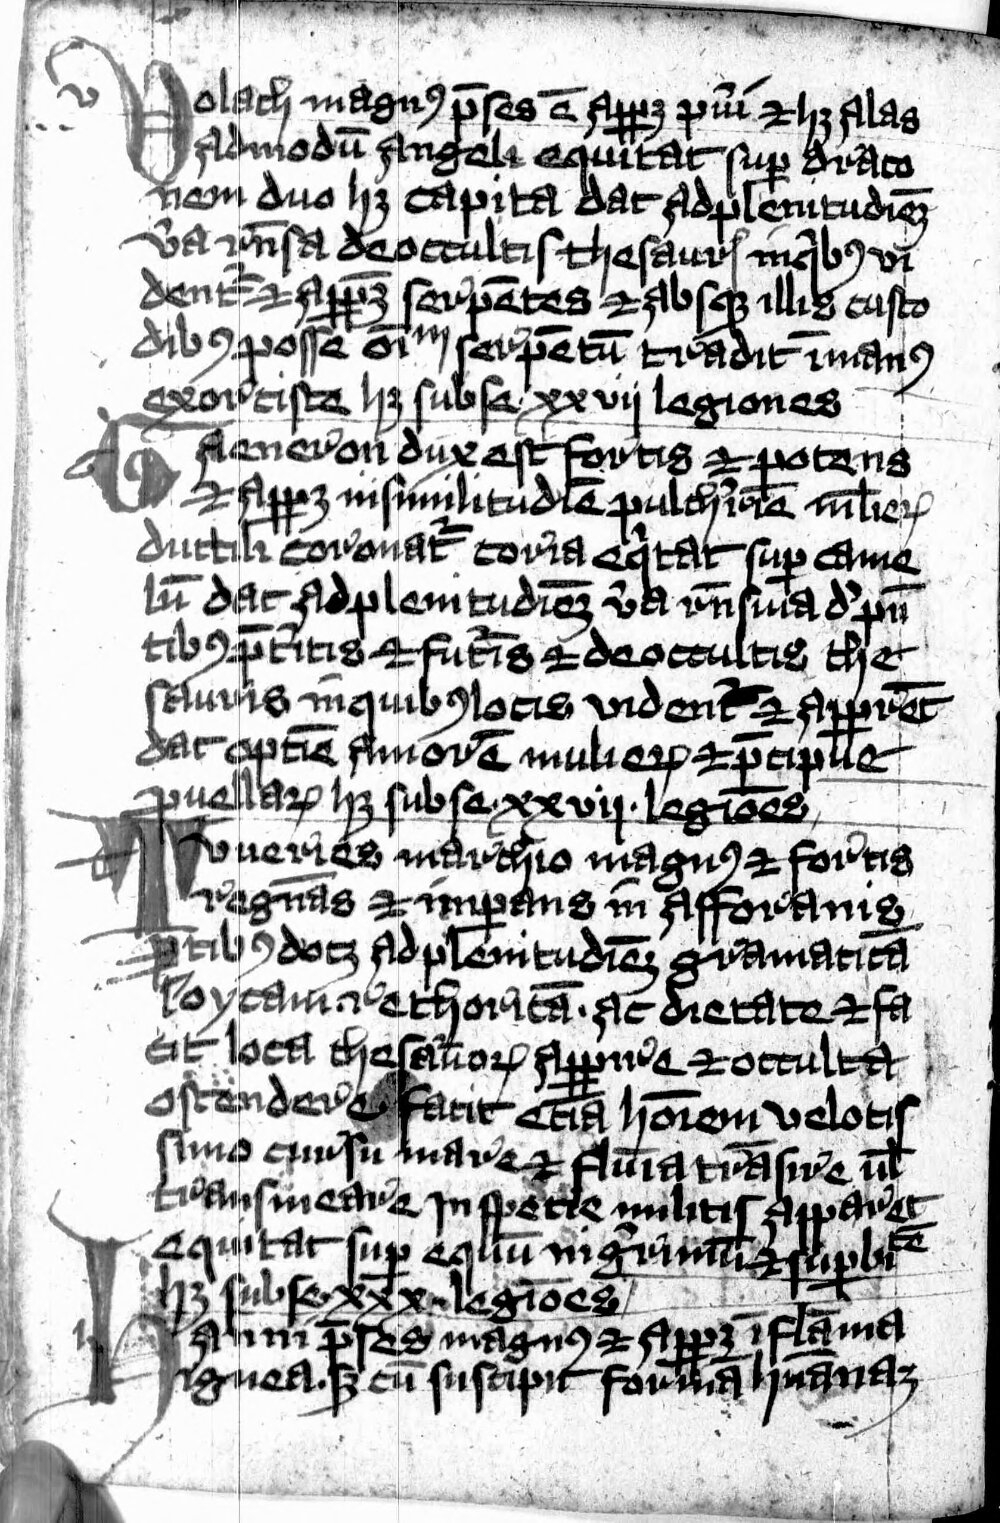 Volach magnꝰ p̄ses ē Appꝫ pūi & hꝫ Alas
Admodū Angeli equitat sup draco
nem duo hꝫ capita dat Adplenitudiēꝫ
v̄a rn̄sa deoccultis thesaurꝭ inqͥbꝰ vi
dent᷑ & Appꝫ serpētes & absqꝫ illis custo
dibꝰ posse serpētū tradit ī manꝰ
exorciste hꝫ subse · xxvij legiones
Gaeneron dux est fortis & potens
& Appꝫ insimilitudīe pulcherīe mlierꝝ
ductili coronat᷑ coria eqͥtat sup came
lū dat Adplenitudīeꝫ v̄a rn̄siua d' pn̄
tibꝰ p̄teritis & futuris & deoccultis the
sauris inquibꝰ locis vident᷑ & Apparēt
dat optīe Amorē mulierꝝ & p̄cipue
puellarꝝ hꝫ subse · xxvij · legiōes
Tvueries marchio magnꝰ & fortis
regnās & imperans in Afforanis
ptibꝰ docꝫ Adplenitudīeꝫ gramaticā
loycam · rethoricā · Ac dictate & fa
cit loca thesauroꝝ Apprire & occulta
ostendere facit etiā hoīem velocis
simo cursu mare & fluuia trāsire ul̄
transmeare In specie militis Apparet
equitat sup equū nigerrimū & supbi
hꝫ subse · xxx · legiōes
hanni p̄ses magnꝰ & Appꝫ ī flāma
ignea · sꝫ cū suscipit formā hūanaꝫ